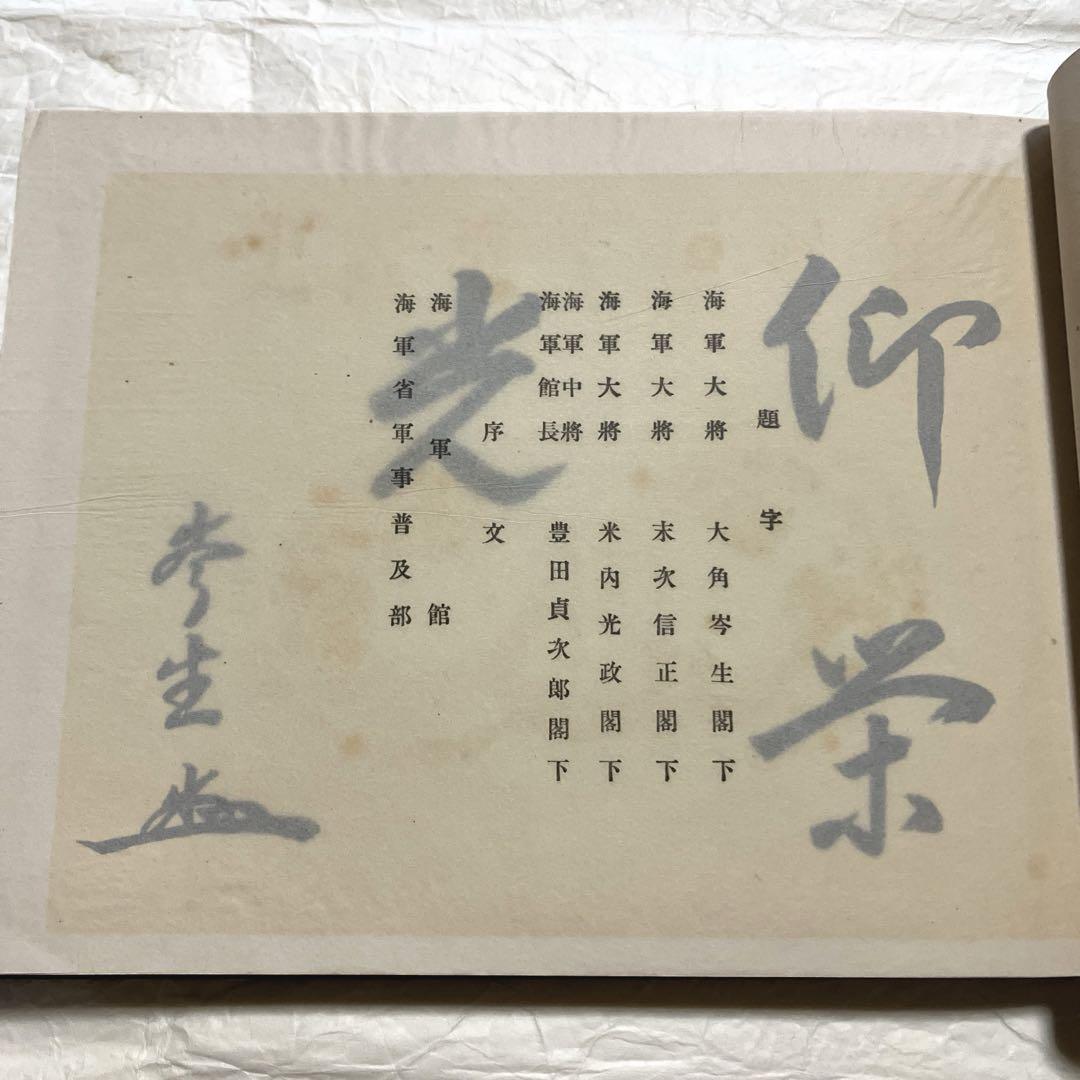 題字
海軍大將 大角岑生閣下
海軍大將 末次信正閣下
海軍大將 米內光政閣下
海軍中將
海軍館長 豊田貞次郎閣下
序文
海軍館
海軍省軍事普及部
仰榮
光
岑生